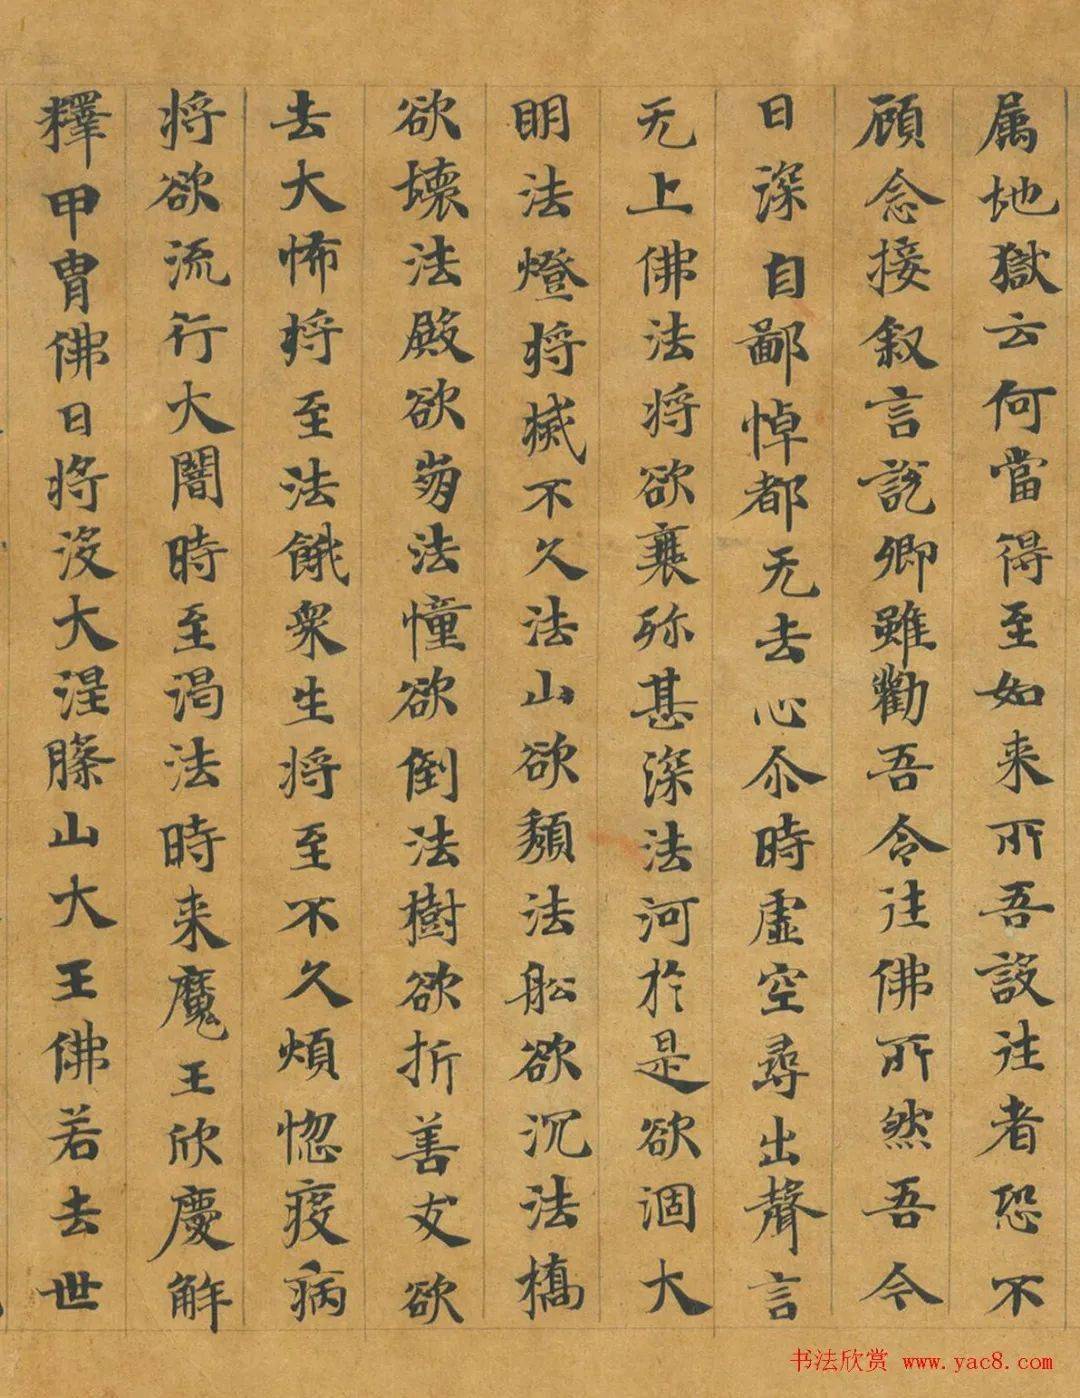 属地獄云何當得至如来所吾設往者恐不
顧念接叙言説卿雖勸吾令往佛所然吾今
日深自鄙悼都无去心尒時虚空尋出聲言
无上佛法将欲衰殄甚深法河於是欲涸大
明法燈将滅不久法山欲頽法船欲沉法橋
欲壞法殿欲崩法幢欲倒法樹欲折善友欲
去大怖将至法餓衆生将至不久煩惚疫病
将欲流行大闇時至渇法時来魔王欣慶解
釋甲胄佛日将没大涅槃山大王佛若去世
书法欣赏 www.yac8.com